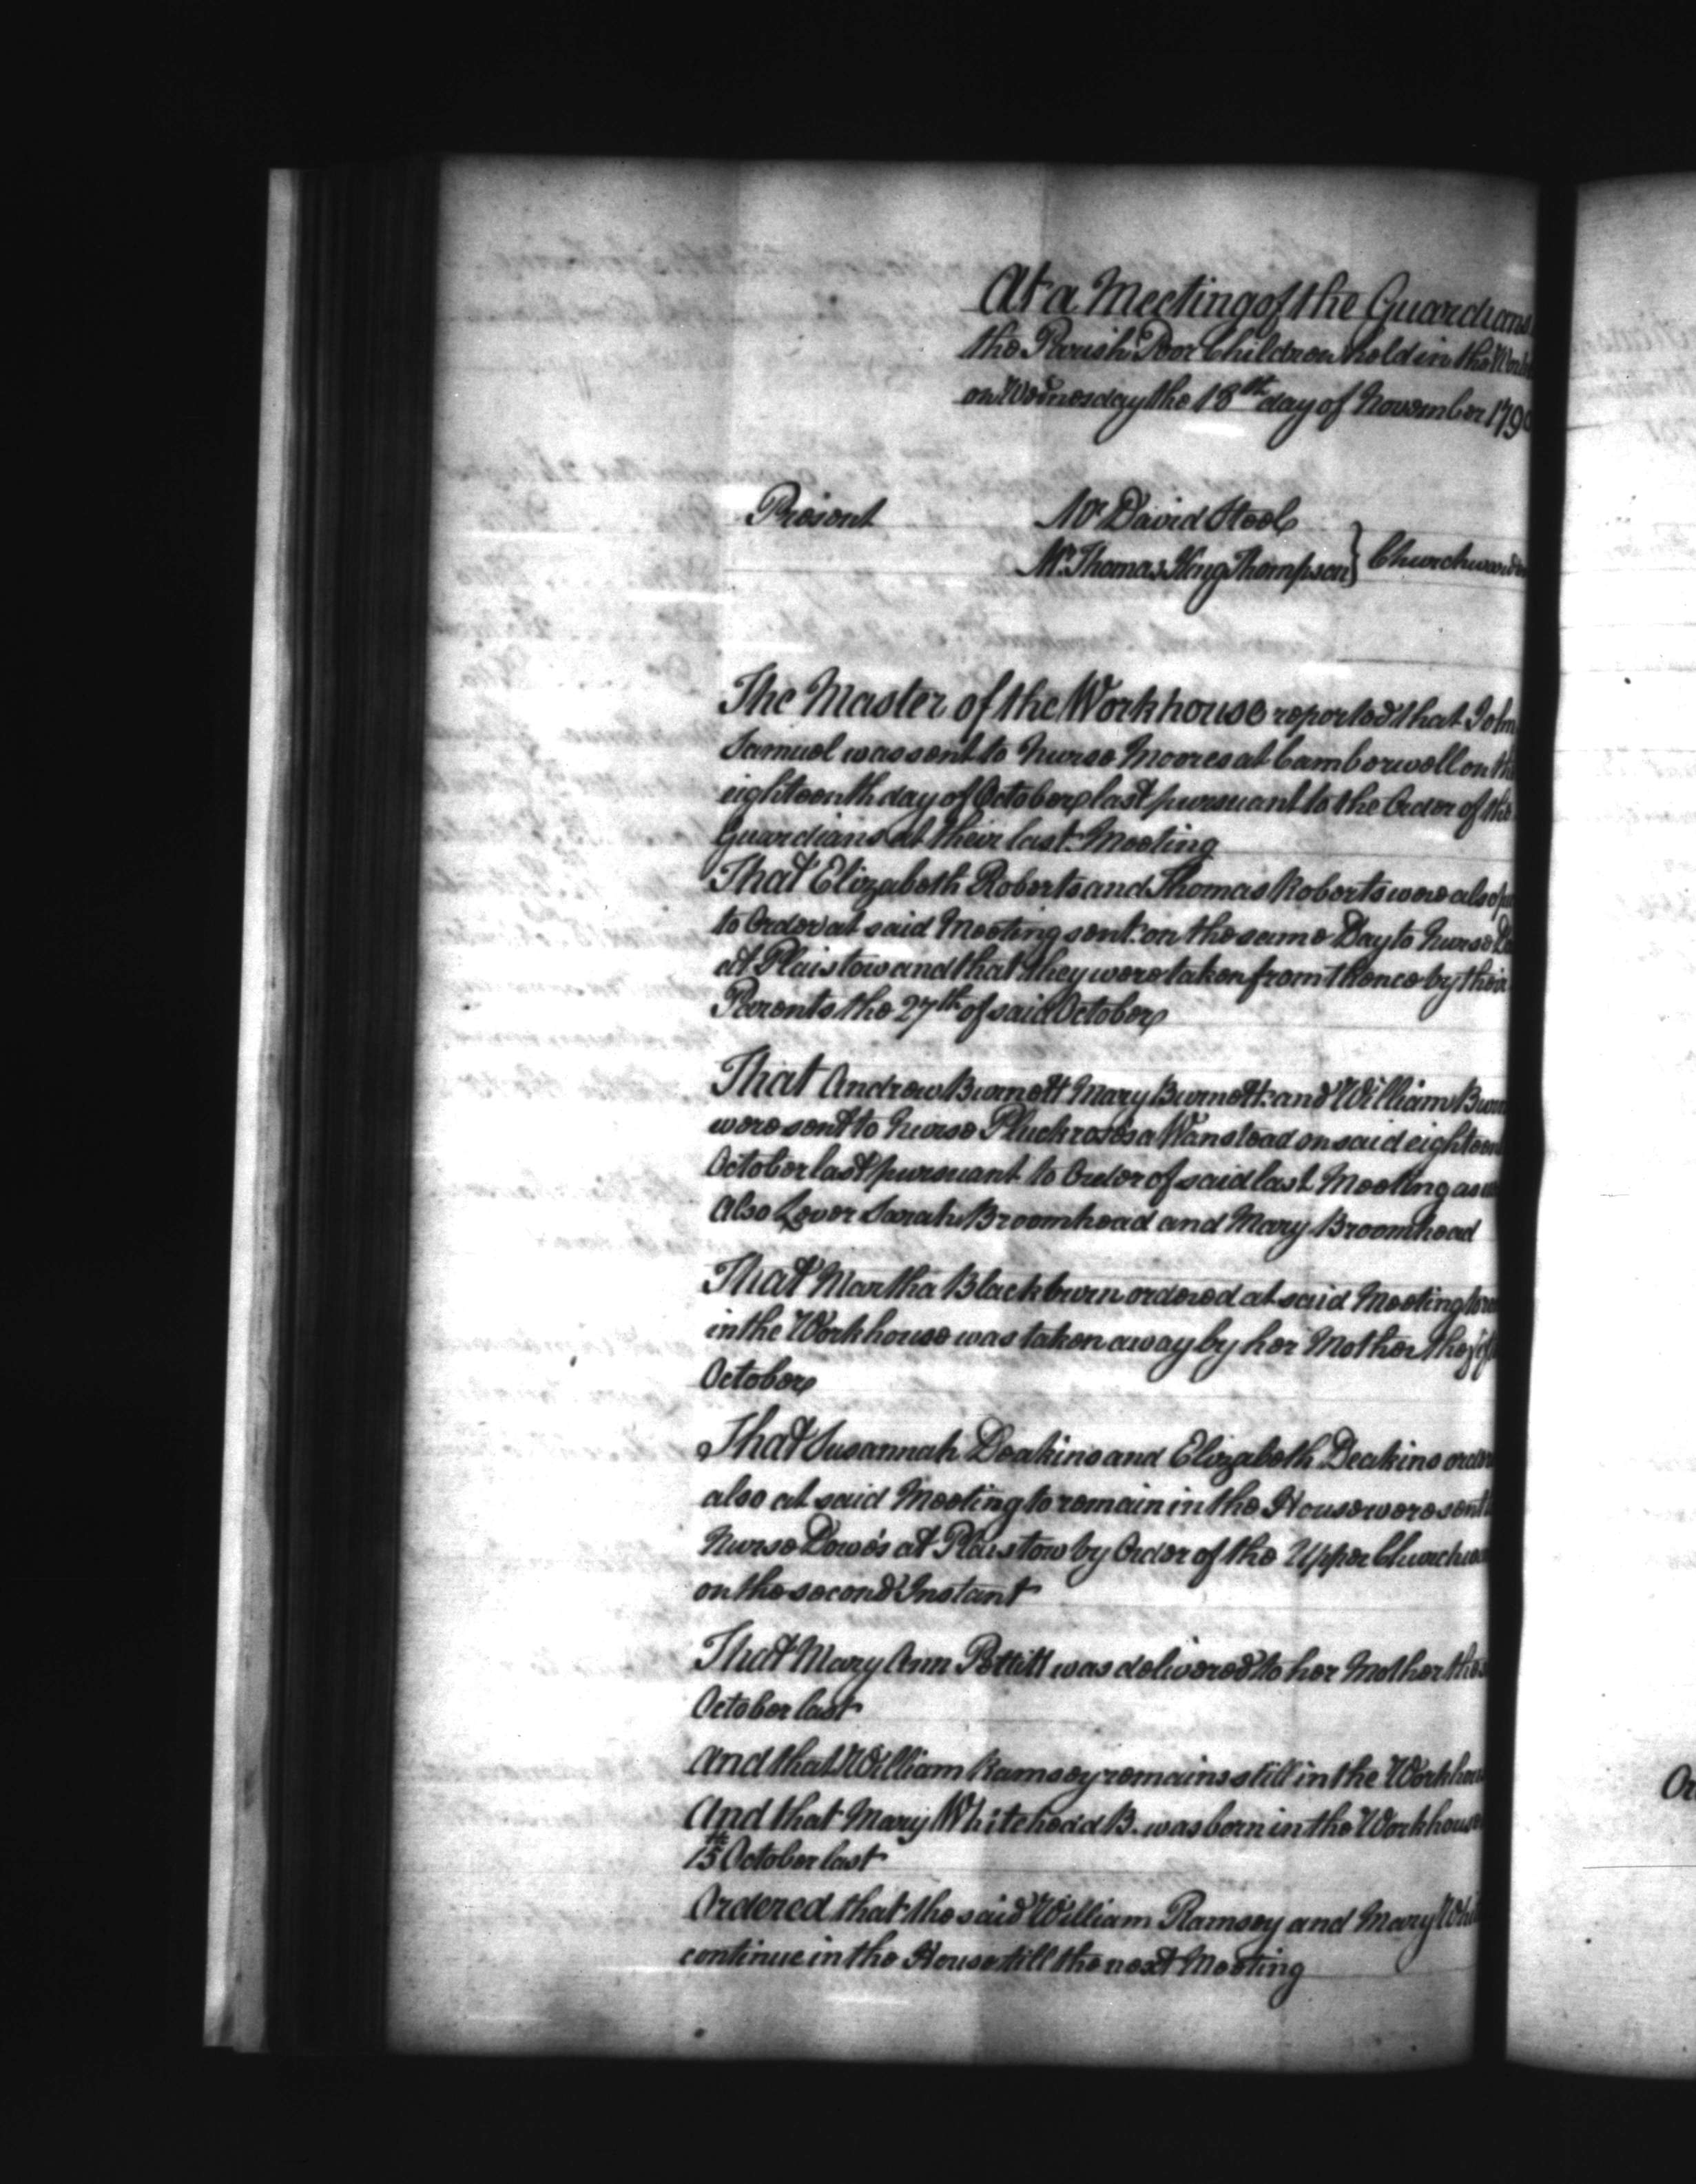 At a Meeting of the Guardians
the Parish Poor Children held in the
on Wednesday the 18th day of November 179
Present Mr David Steel
Mr Thomas King Thompson } Churchwarden
The Master of the Workhouse reported that John
Samuel was sent to Nurse Moores at Camberwell on the
eighteenth day of October last pursuant to the Order of the
Guardians at their last Meeting
That Elizabeth Roberts and Thomas Roberts were also
to Order at said Meeting sent on the same Day to Nurse
at Plaistow and that they were taken from thence by their
Parents the 27th of said October
That Andrew Burnett Mary Burnett and William Burn
were sent to Nurse Pluckroses a Wanstead on said eighteen
October last pursuant to Order of said last Meeting as
Also Lever Sarah Broomhead and Mary Broomhead
That Martha Blackburn ordered at said Meeting to
in the Workhouse was taken away by her Mother the
October
That Susannah Deakins and Elizabeth Deakins order
also at said Meeting to remain in the House were sent
Nurse Dowe's at Plaistow by Order of the Upper Churchwa
on the second Instant
That Mary Ann Pettitt was delivered to her Mother the
October last
And that William Ramsey remains still in the Workhou
And that Mary Whitehead B. was born in the Workhouse
15th October last
Ordered that the said William Ramsey and Mary Whi
continue in the House till the next Meeting